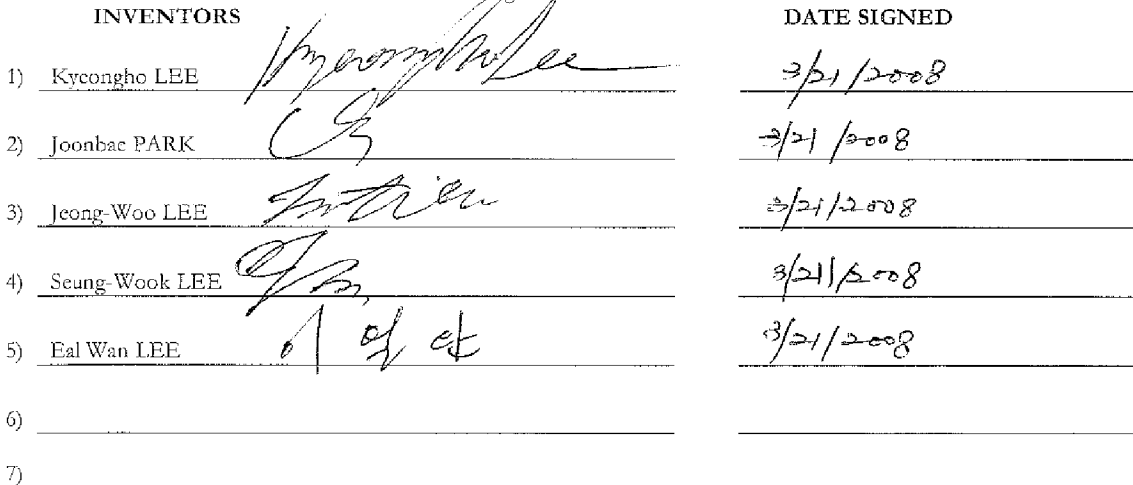 INVENTORS DATE SIGNED
1) Kyeongho LEE Kyeongho Lee 3/21/2008
2) Joonbae PARK 3/21/2008
3) Jeong-Woo LEE 3/21/2008
4) Seung-Wook LEE 3/21/2008
5) Eal Wan LEE 이얼완 3/21/2008
6)
7)